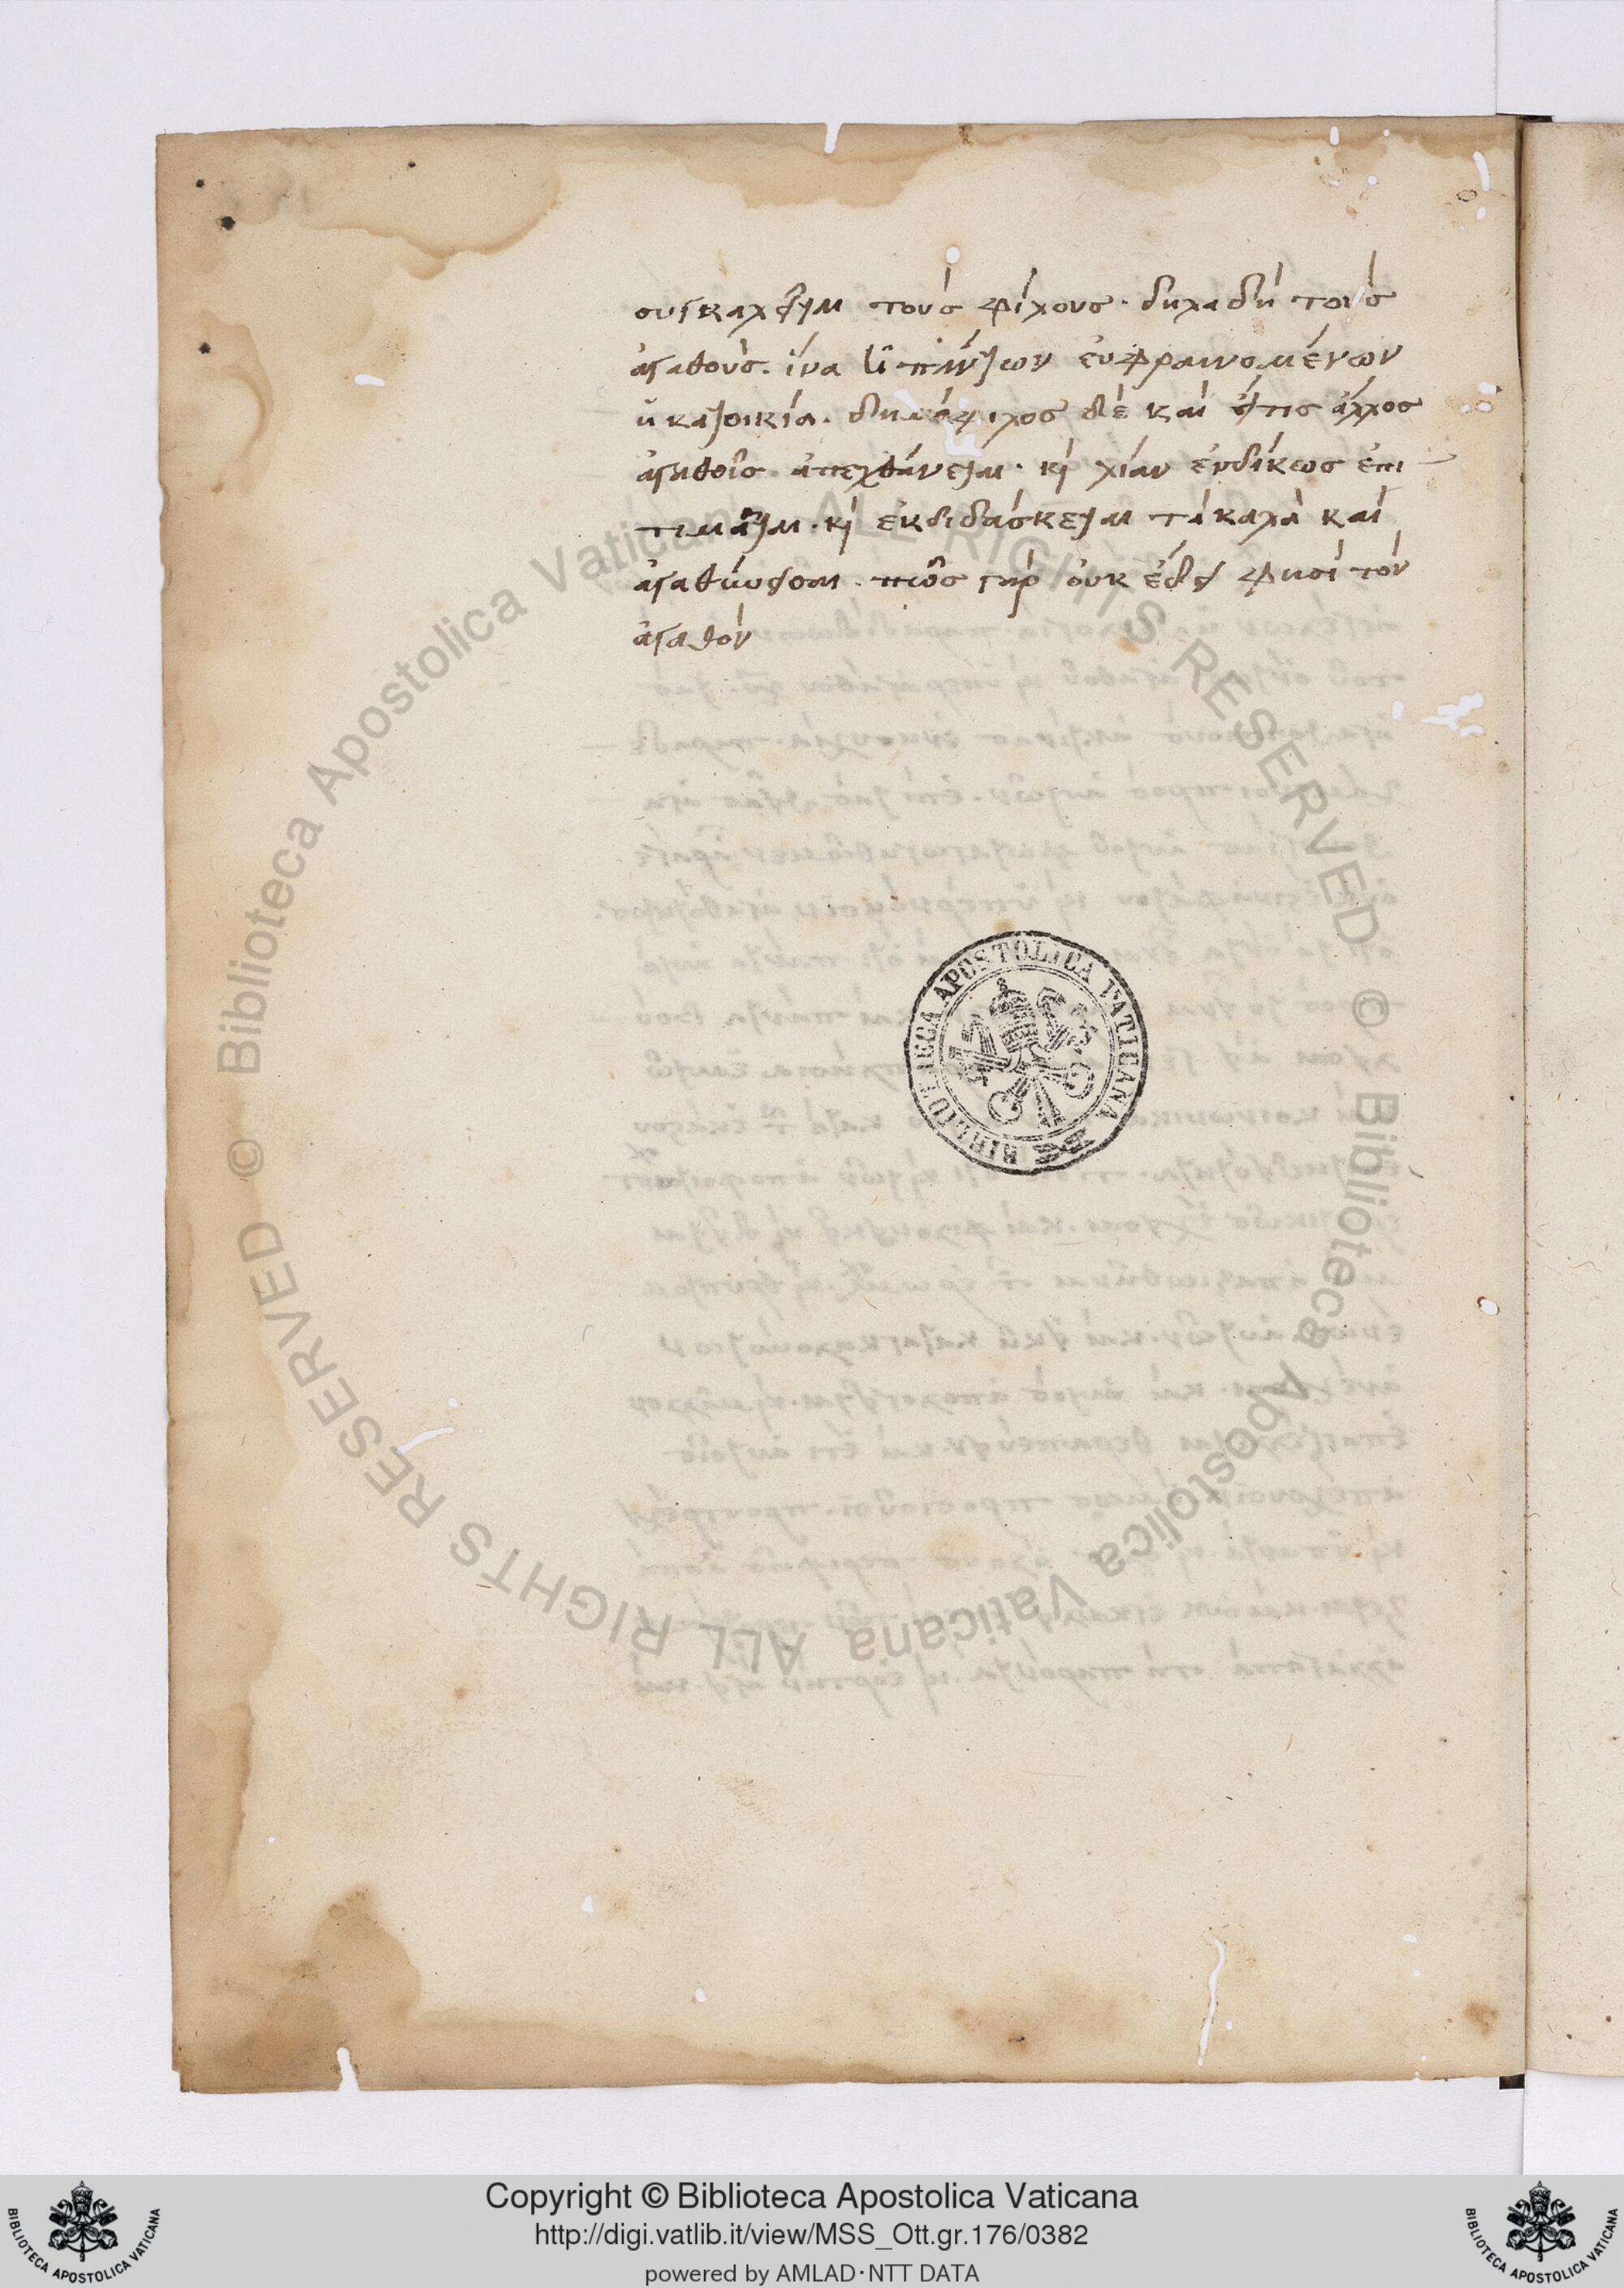 συγκαλεῖται τοὺς φίλους· δηλαδὴ τοὺς
ἀγαθούς. ἵνα ἦ πάντων εὐφραινομένων
ἡ κατοικία. δημόφιλος δὲ καὶ εἴτις ἄλλος
ἀγαθοῖς ἀπεχθάνεται· κὶ λίαν ἐνδίκως ἐπι
τιμᾶται· κὶ ἐκδιδάσκεται τὰ καλὰ καὶ
πῶς γὰρ οὐκ ἔδει φησὶ τὸν
ἀγαθὸν
BIBLIOTECA APOSTOLICA VATICANA
© Biblioteca Apostolica Vaticana ALL RIGHTS RESERVED © Biblioteca Apostolica Vaticana ALL RIGHTS RESERVED
BIBLIOTECA APOSTOLICA VATICANA
Copyright © Biblioteca Apostolica Vaticana
http://digi.vatlib.it/view/MSS_Ott.gr.176/0382
powered by AMLAD·NTT DATA
BIBLIOTECA APOSTOLICA VATICANA